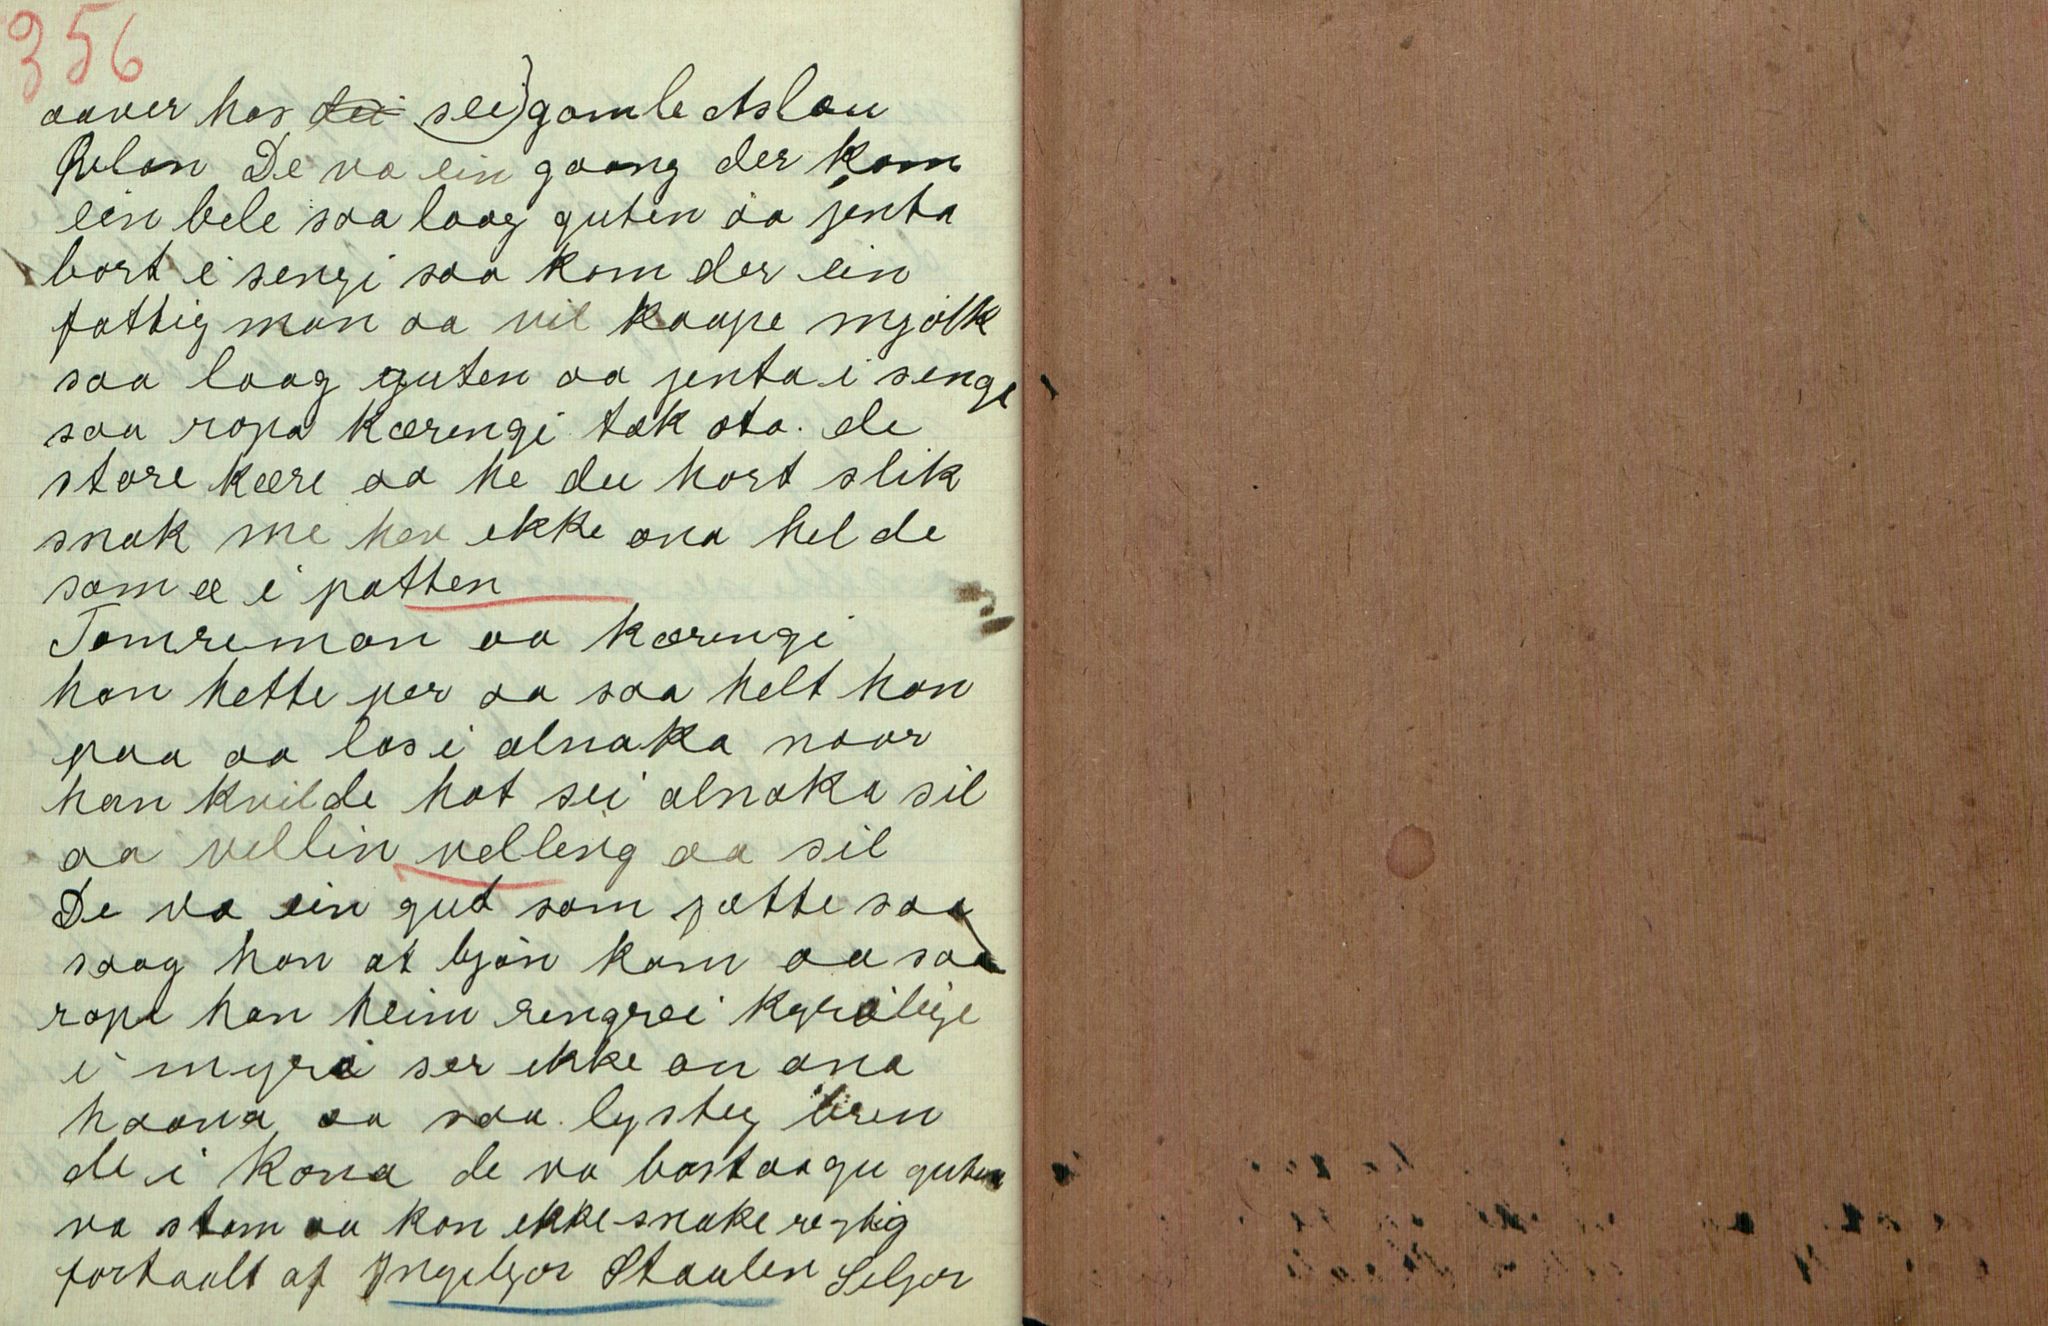 356
aaver hos dei sei) gamle Aslau
De va ein gaang der kom
ein bele saa laag guten aa jenta
bort i sengi saa kom der ein
fattig man aa vil kaape mjølk
saa laag guten aa jenta i senge
saa ropa kærengi tak ota. de
store kære aa he du hort slik
snak me hev ekke ona hel de
som æ i potten
Tomreman aa kærengi
han hette per aa saa helt han
paa aa las i alnaka naar
han kvilde hot sei alnaka sil
aa vellin velleng aa sil
De va ein gut som jætte saa
saag han at bjøn kom aa saa
rope han heim
i myra ser ekke an ana
haana aa saa lysteg
de i Kona de va guten
va stam aa kan ekke snake regtig
fortaalt af Yngebjor Staulen Seljor